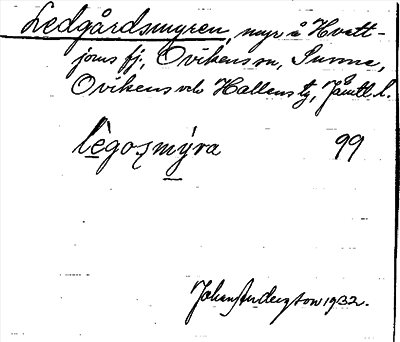 Ledgårdsmyren, myr å Hvatt-
joms fj, Ovikens sn, Sunne,
Ovikens o Hallens tg, Jämtl. l.
lègoʒmýra 99
Johan Anderzton 1932.